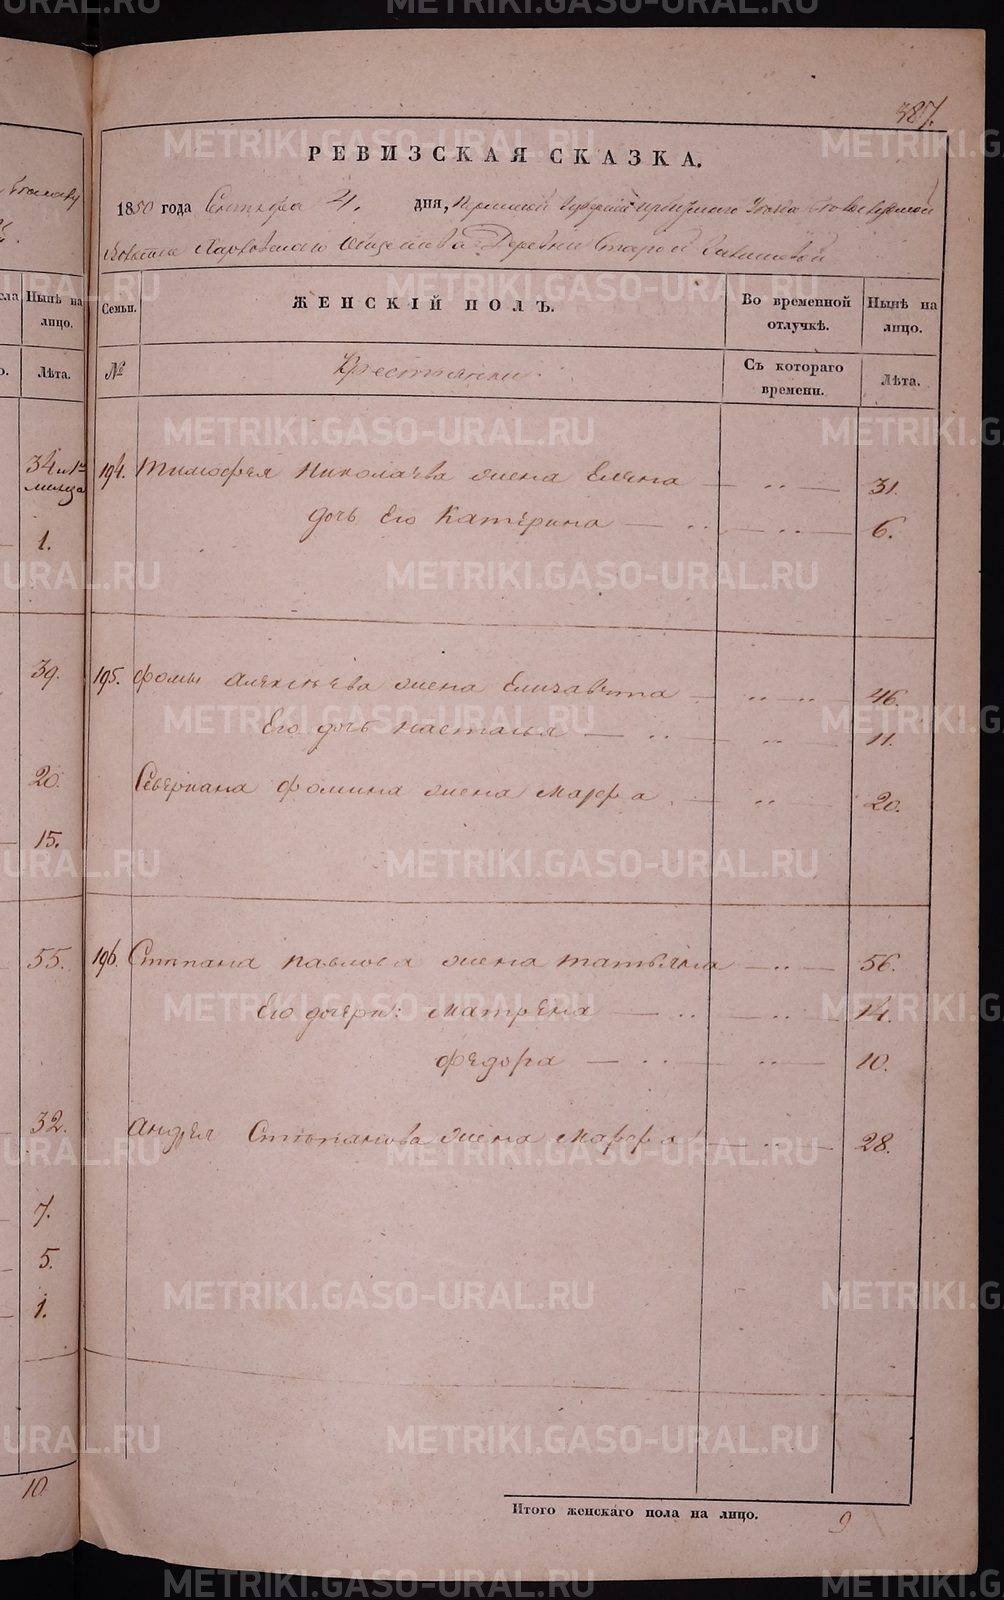 387.
РЕВИЗСКАЯ СКАЗКА.
1850 года Сентября 4. дня, Пермской Губернии Ирбитского Уезда
Волости Харловского Общества Деревни Старой
Семьи. ЖЕНСКІЙ ПОЛЪ. Во временной отлучкѣ. Нынѣ на лицо.
№ Крестьянки. Съ котораго времени. Лѣта.
194. Тимофея Николаева жена Елена — „ — 31.
дочь Его Катерина — „ — „ — 6.
195. Фомы Алексѣева жена Елизавета — „ — 46.
Его дочь Настасья — „ — „ 11.
Севериана Фомина жена Марфа. — „ — 20.
196. Степана Павлова жена Татьяна — „ — 56.
Его дочери: Матрена — „ — „ — 14.
Федора — „ — „ — 10.
Андрея Степанова жена Марфа — „ — 28.
Итого женскаго пола на лицо. 9
Нынѣ на лицо.
Лѣта.
34 и 1
месяца
1.
39.
20.
15.
55.
32.
7.
5.
1.
10
METRIKI.GASO-URAL.RU